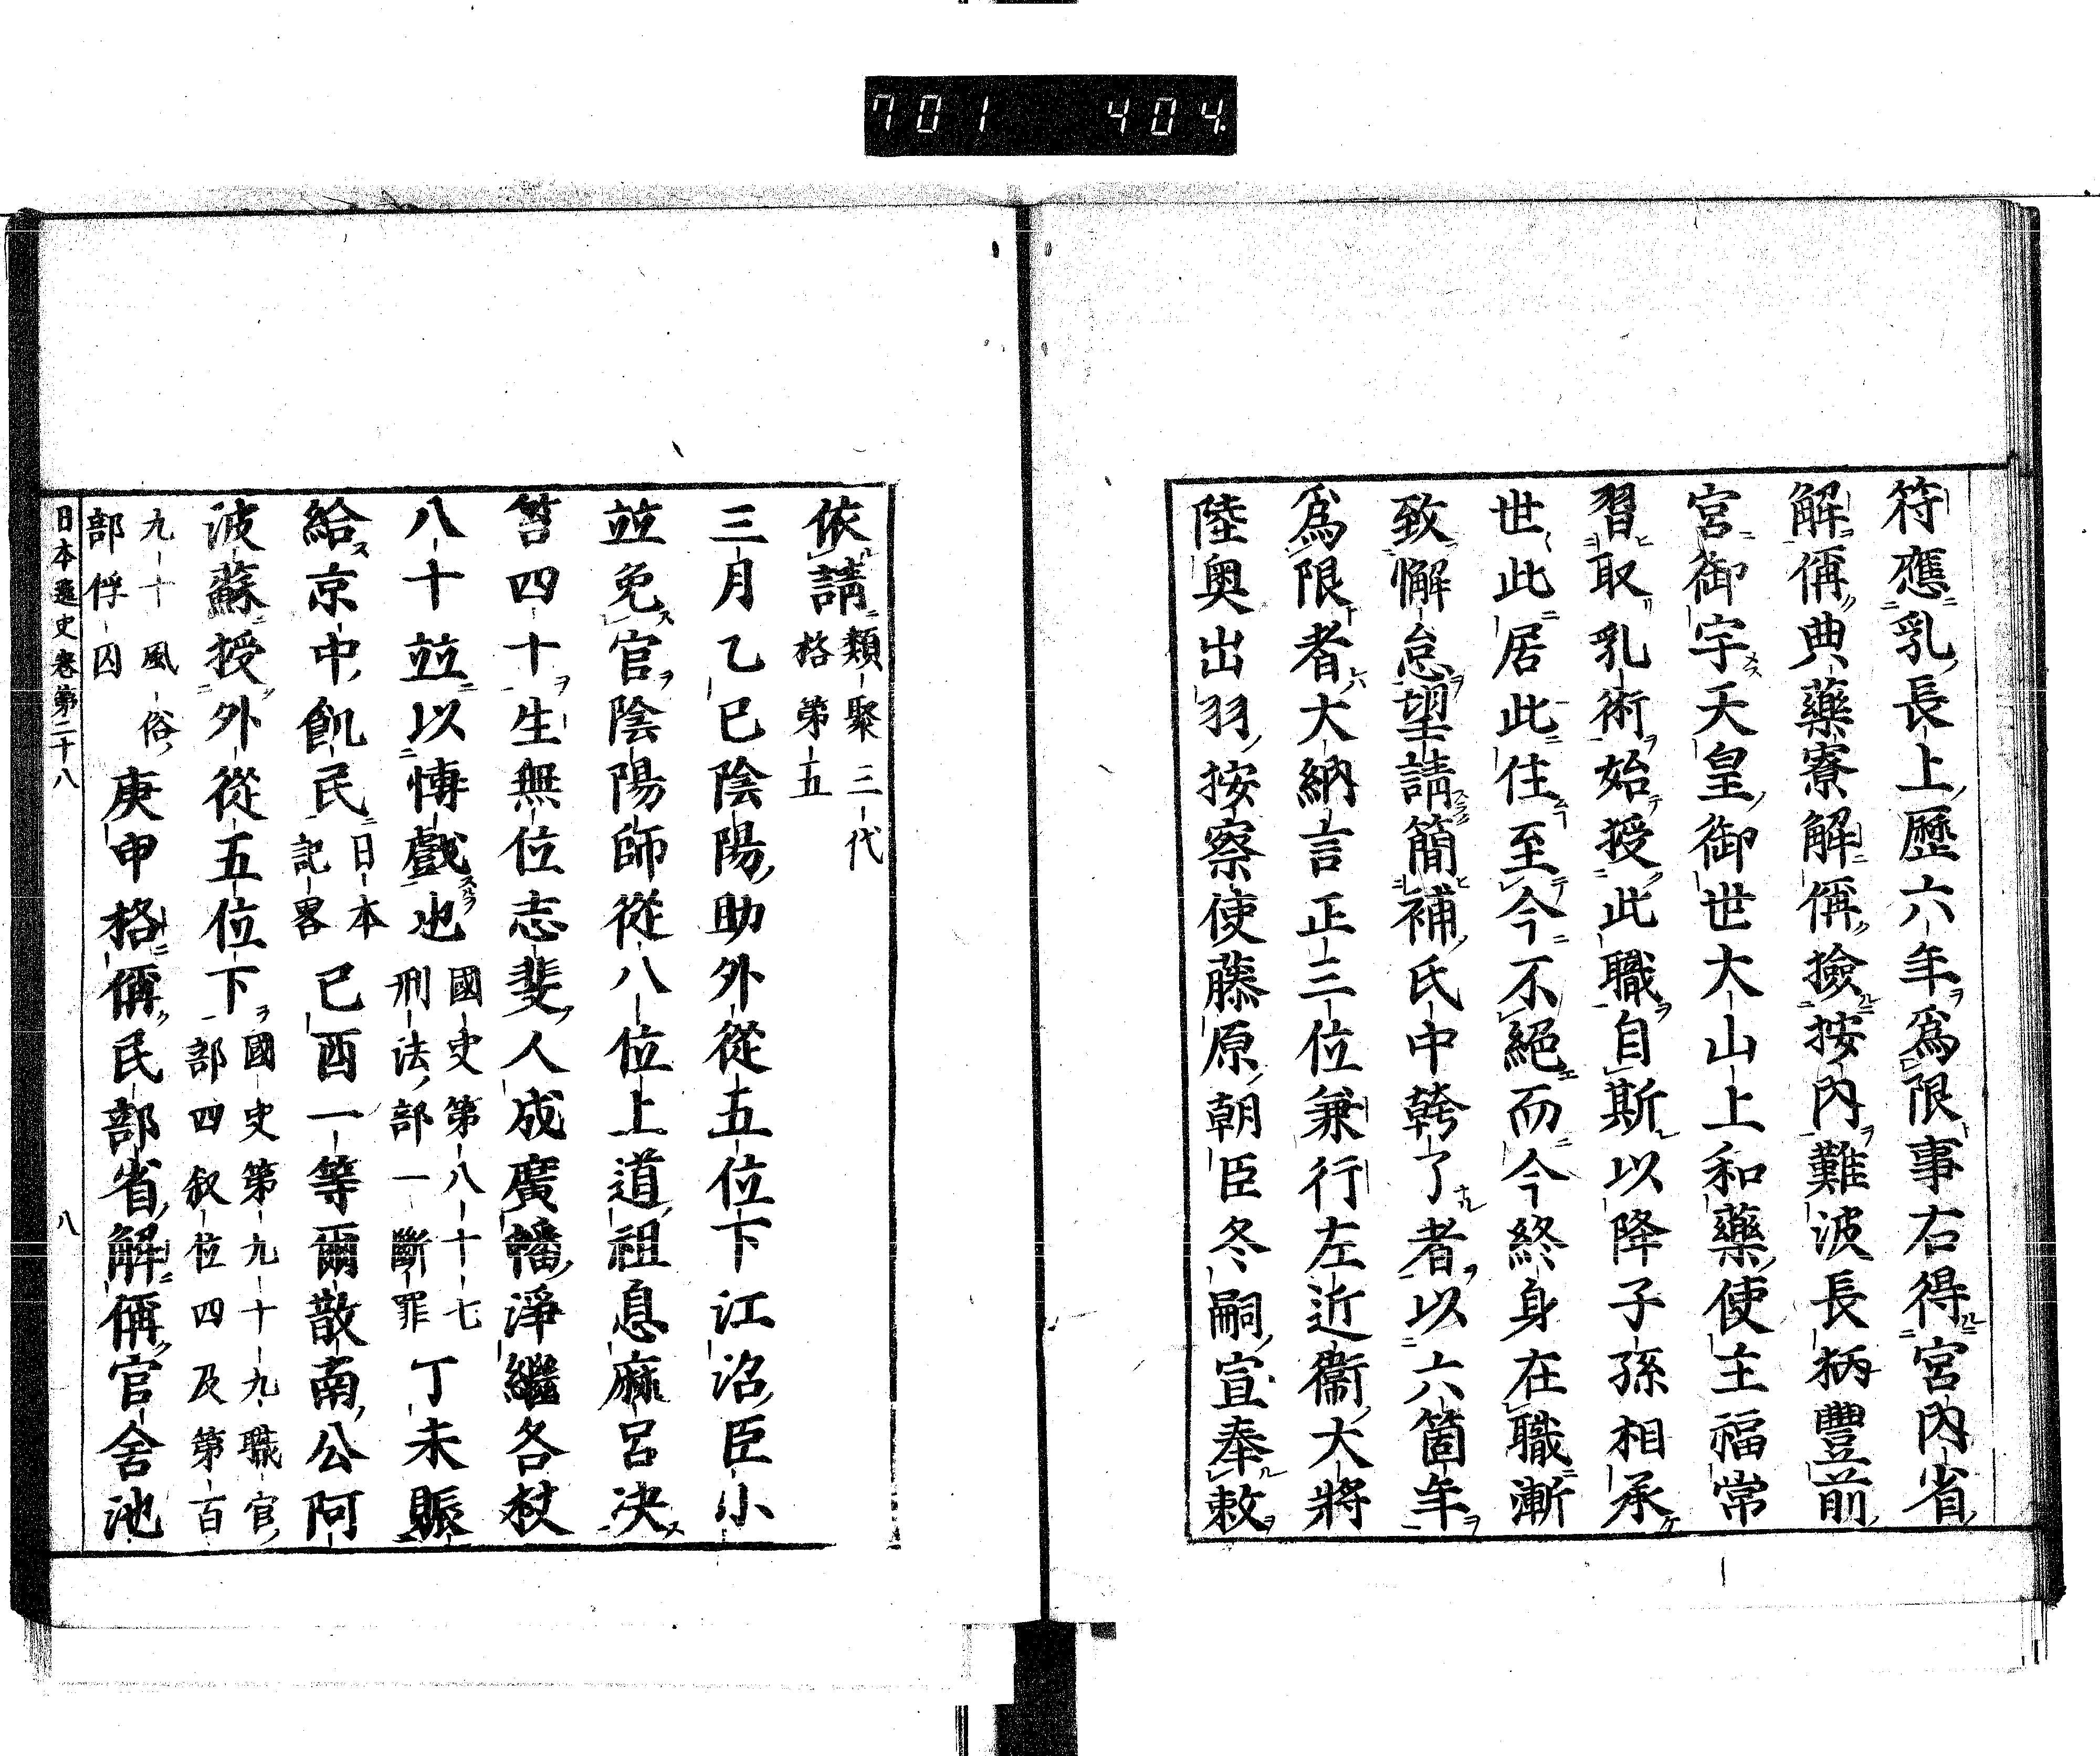 701 404
符應乳長上歷六年爲限事右得宮內省
解偁典藥寮解偁撿按內難波長柄豐前
宮御宇天皇御世大山上和藥使主福常
習取乳術始授此職自斯以降子孫相承
世此居此住至今不絕而今終身在職漸
致懈怠望請簡補氏中幹了者以六箇年
爲限者大納言正三位兼行左近衞大將
陸奥出羽按察使藤原朝臣冬嗣宣奉敕
依請類聚三代
格第五
三月乙巳陰陽助外從五位下江沼臣小
並免官陰陽師從八位上道祖息麻呂决
笞四十生無位志斐人成廣幡淨繼各杖
八十並以博戲也國史第八十七
刑法部一斷罪
丁未賑
給京中飢民日本
記畧
己酉一等爾散南公阿
波蘇授外從五位下國史第九十九職官
部四叙位四及第百
九十風俗
部俘囚
庚申格偁民部省解偁官舍池
日本逸史卷第二十八
八